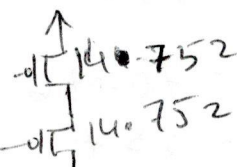 14.752
14.752